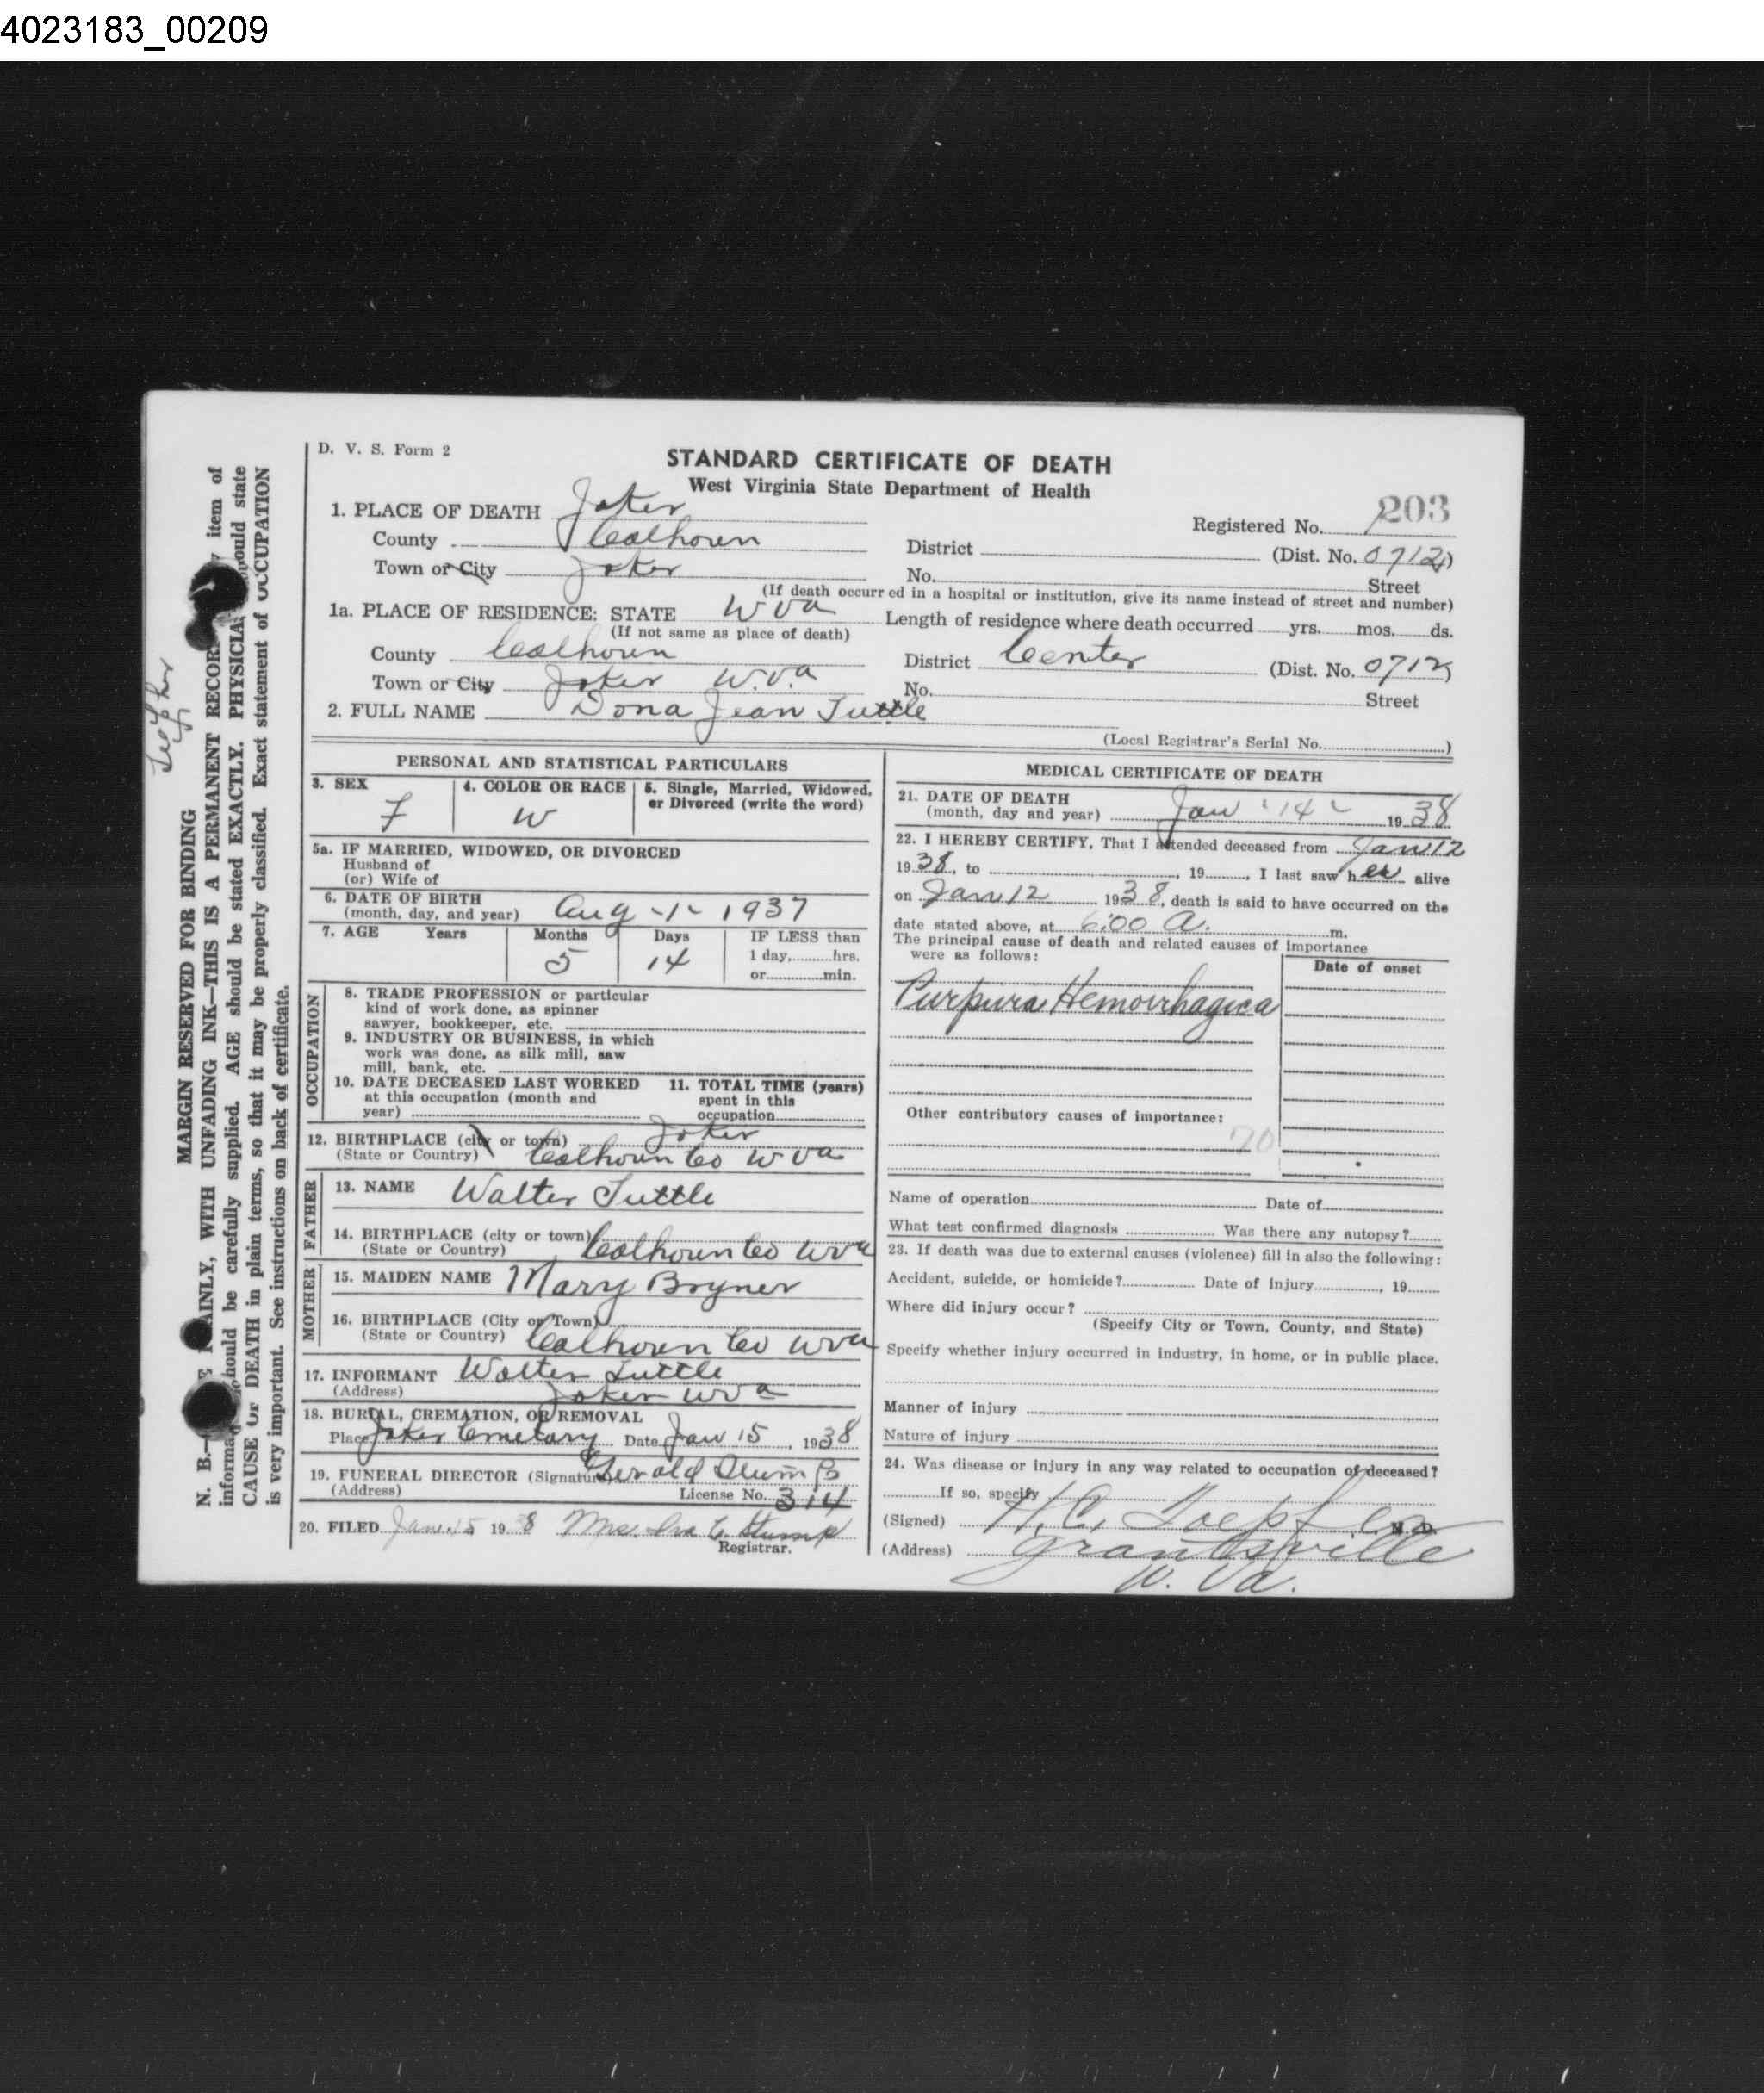 4023183_00209
D. V. S. Form 2
STANDARD CERTIFICATE OF DEATH
West Virginia State Department of Health
1. PLACE OF DEATH Joker
Registered No. 203
County Calhoun
District (Dist. No. 0712)
Town or City Joker
No. Street
(If death occurred in a hospital or institution, give its name instead of street and number)
1a. PLACE OF RESIDENCE: STATE W va
(If not same as place of death)
Length of residence where death occurred yrs. mos. ds.
County Calhoun
District Center (Dist. No. 0712)
Town or City Joker W.V.a
No. Street
2. FULL NAME Dona Jean Tuttle
(Local Registrar's Serial No. )
PERSONAL AND STATISTICAL PARTICULARS
3. SEX F
4. COLOR OR RACE W
5. Single, Married, Widowed, or Divorced (write the word)
5a. IF MARRIED, WIDOWED, OR DIVORCED
Husband of
(or) Wife of
6. DATE OF BIRTH
(month, day, and year) Aug - 1 - 1937
7. AGE Years Months Days IF LESS than
5 14 1 day, hrs.
or min.
OCCUPATION
8. TRADE PROFESSION or particular
kind of work done, as spinner
sawyer, bookkeeper, etc.
9. INDUSTRY OR BUSINESS, in which
work was done, as silk mill, saw
mill, bank, etc.
10. DATE DECEASED LAST WORKED
at this occupation (month and
year)
11. TOTAL TIME (years)
spent in this
occupation
12. BIRTHPLACE (city or town) Joker
(State or Country) Calhoun Co W va
FATHER
13. NAME Walter Tuttle
14. BIRTHPLACE (city or town)
(State or Country) Calhoun Co W va
MOTHER
15. MAIDEN NAME Mary Bryner
16. BIRTHPLACE (City or Town)
(State or Country) Calhoun Co W va
17. INFORMANT Walter Tuttle
(Address) Joker W va
18. BURIAL, CREMATION, OR REMOVAL
Place Joker Cmetary Date Jan 15, 1938
19. FUNERAL DIRECTOR (Signature) Gerald
(Address) License No. 314
20. FILED Jan. 15 1938 Mrs. Ira C. Stump
Registrar.
MEDICAL CERTIFICATE OF DEATH
21. DATE OF DEATH
(month, day and year) Jan - 14 - 1938
22. I HEREBY CERTIFY, That I attended deceased from Jan 12
1938, to , 19 , I last saw her alive
on Jan 12 1938, death is said to have occurred on the
date stated above, at 6:00 A. m.
The principal cause of death and related causes of importance
were as follows:
Date of onset
Purpura Hemorrhagica
Other contributory causes of importance:
70
Name of operation Date of
What test confirmed diagnosis Was there any autopsy?
23. If death was due to external causes (violence) fill in also the following:
Accident, suicide, or homicide? Date of injury , 19
Where did injury occur?
(Specify City or Town, County, and State)
Specify whether injury occurred in industry, in home, or in public place.
Manner of injury
Nature of injury
24. Was disease or injury in any way related to occupation of deceased?
If so, specify
(Signed) H. C. Toepfer M. D.
(Address) Grantsville
W. Va.
MARGIN RESERVED FOR BINDING
N. B.— AINLY, WITH UNFADING INK—THIS IS A PERMANENT RECOR item of
informa should be carefully supplied. AGE should be stated EXACTLY. PHYSICIA should state
CAUSE OF DEATH in plain terms, so that it may be properly classified. Exact statement of OCCUPATION
is very important. See instructions on back of certificate.